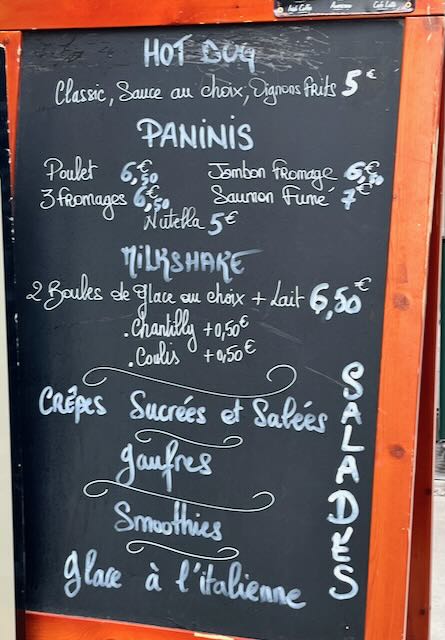 HOT DOG
Classic, Sauce au choix, Oignons frits 5€
PANINIS
Poulet 6,50€ Jambon fromage 6,50€
3 fromages 6,50€ Saumon Fumé 7€
Nutella 5€
MILKSHAKE
2 Boules de Glace au choix + Lait 6,50€
. Chantilly +0,50€
. Coulis +0,50€
CRÊPES Sucrées et Salées
gaufres
Smoothies
glace à l'italienne
SALADES